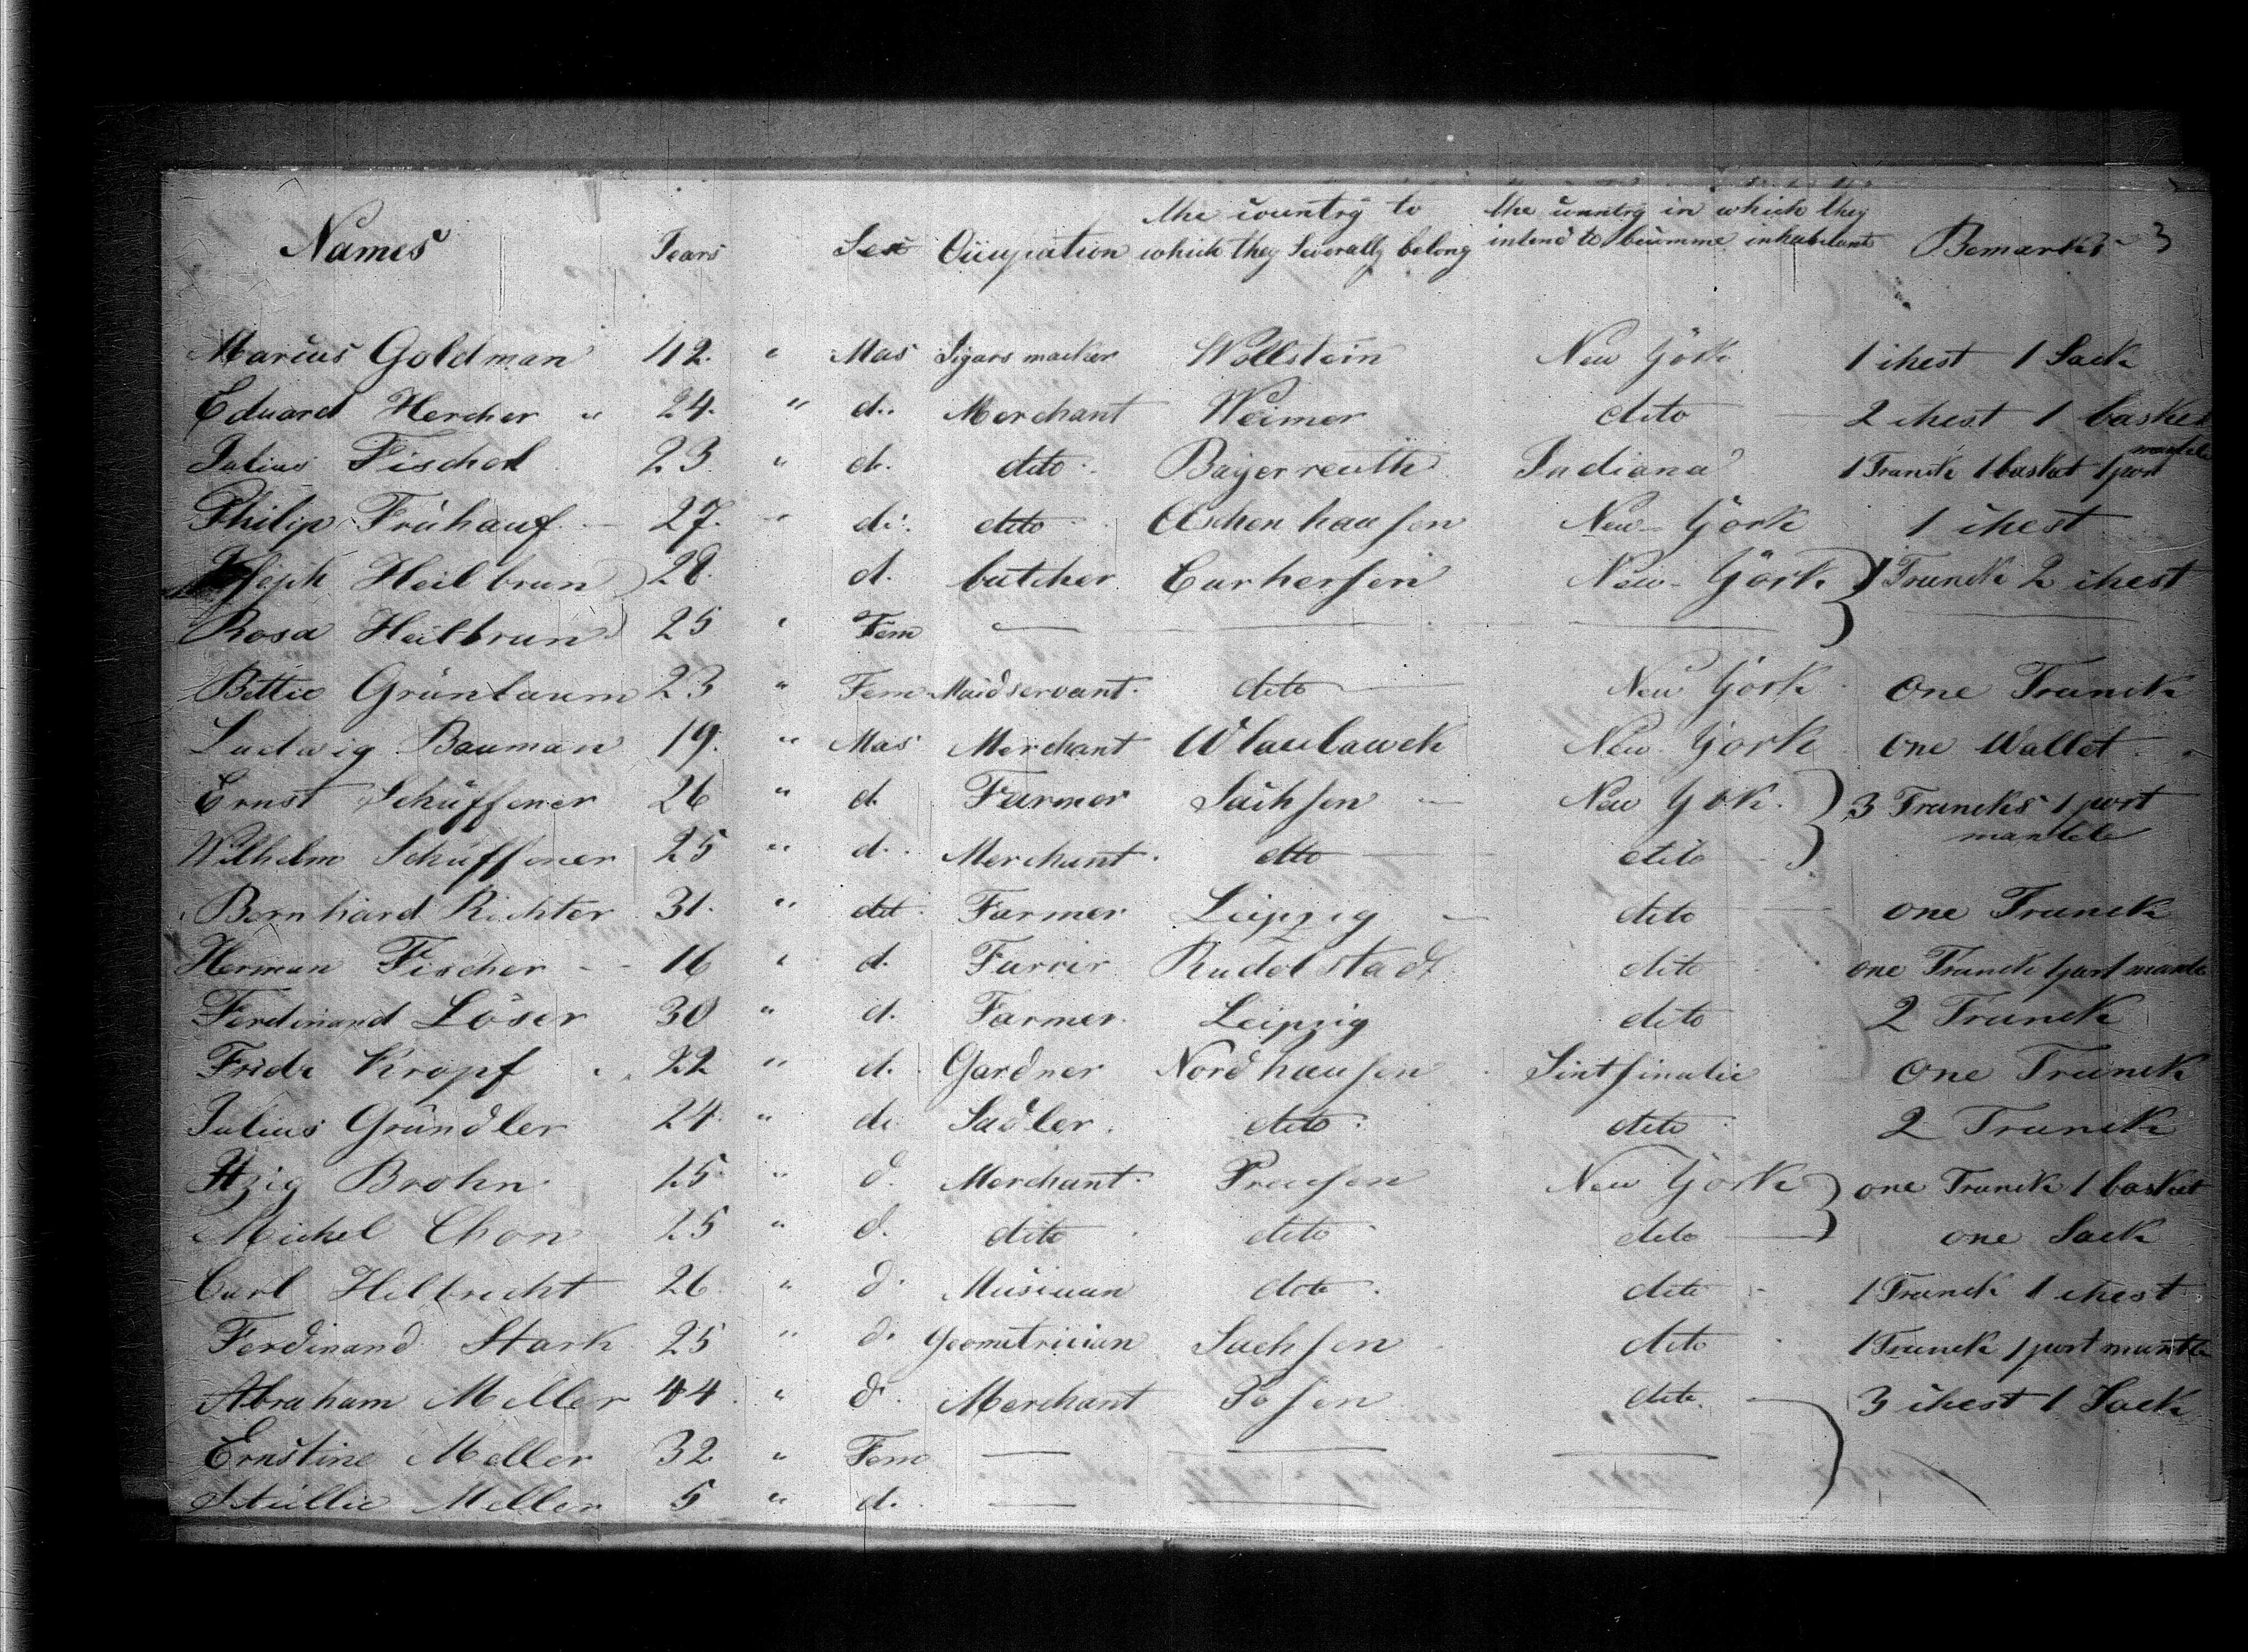 Names Years Sex Occupation the country to which they Severally belong the country in which they intend to becumme inhabitants Remarks 3
Marcus Goldman 42. " Mas Sigars macker Wollstein New York 1 chest 1 Sack
Eduard Hercher " 24. " d.. Merchant Weimer dito 2 chest 1 basket
Julius Fischel 23. " d. dito Bayerreuth Indiana 1 Trunck 1 basket 1 port mantele
Philip Frühauf 27. " d. dito Aschenhausen New-York 1 chest
Joseph Heilbrun 28. d. butcher Curhessen New-York 1 Trunck 2 chest
Rosa Heilbrun 25 " Fem
Bettie Grünbaum 23 " Fem Maidservant. dito New York One Trunck
Ludwig Bauman 19. " Mas Merchant Wlaulawek New York One Wallet
Ernst Schüffener 26 " d. Farmer Sachsen New Yok. 3 Truncks 1 port mantele
Wilhelm Schüffener 25 " d. Merchant. dto dito
Bernhard Richter 31. " dit. Farmer Leipzig dito one Trunck
Herman Fischer 16 " d. Furrir Rudolstadt dito one Trunck 1 port mantle
Ferdinand Löser 30 " d. Farmer Leipzig dito 2 Trunck
Fridr Kropf 22 " d. Gardner Nordhausen Sintsinatie One Trunck
Julius Gründler 24. " d. Sadler. dito. dito 2 Trunck
Itzig Brohn 25 " d. Merchant. Preusen New York one Trunck 1 basket
Michel Chon 25 " d. dito dito dito one Sack
Carl Hilbrecht 26 " d. Musician dito. dito 1 Trunck 1 chest
Ferdinand Stark 25 " d. Geometrician Sachsen dito 1 Trunck 1 port mantle
Abraham Meller 44. " d. Merchant Posen dito. 3 chest 1 Sack
Ernstine Meller 32. " Fem
Meller 5 " d.